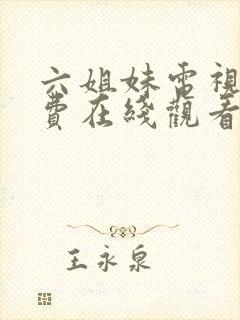 六姐妹電視
費在綫觀看
王永泉